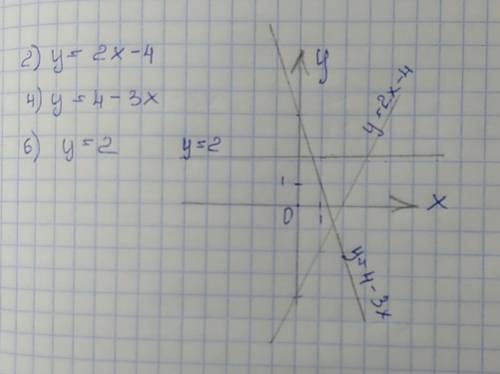 2) y = 2x - 4
4) y = 4 - 3x
6) y = 2
y
y = 2x - 4
y = 2
1
0
1
x
y = 4 - 3x